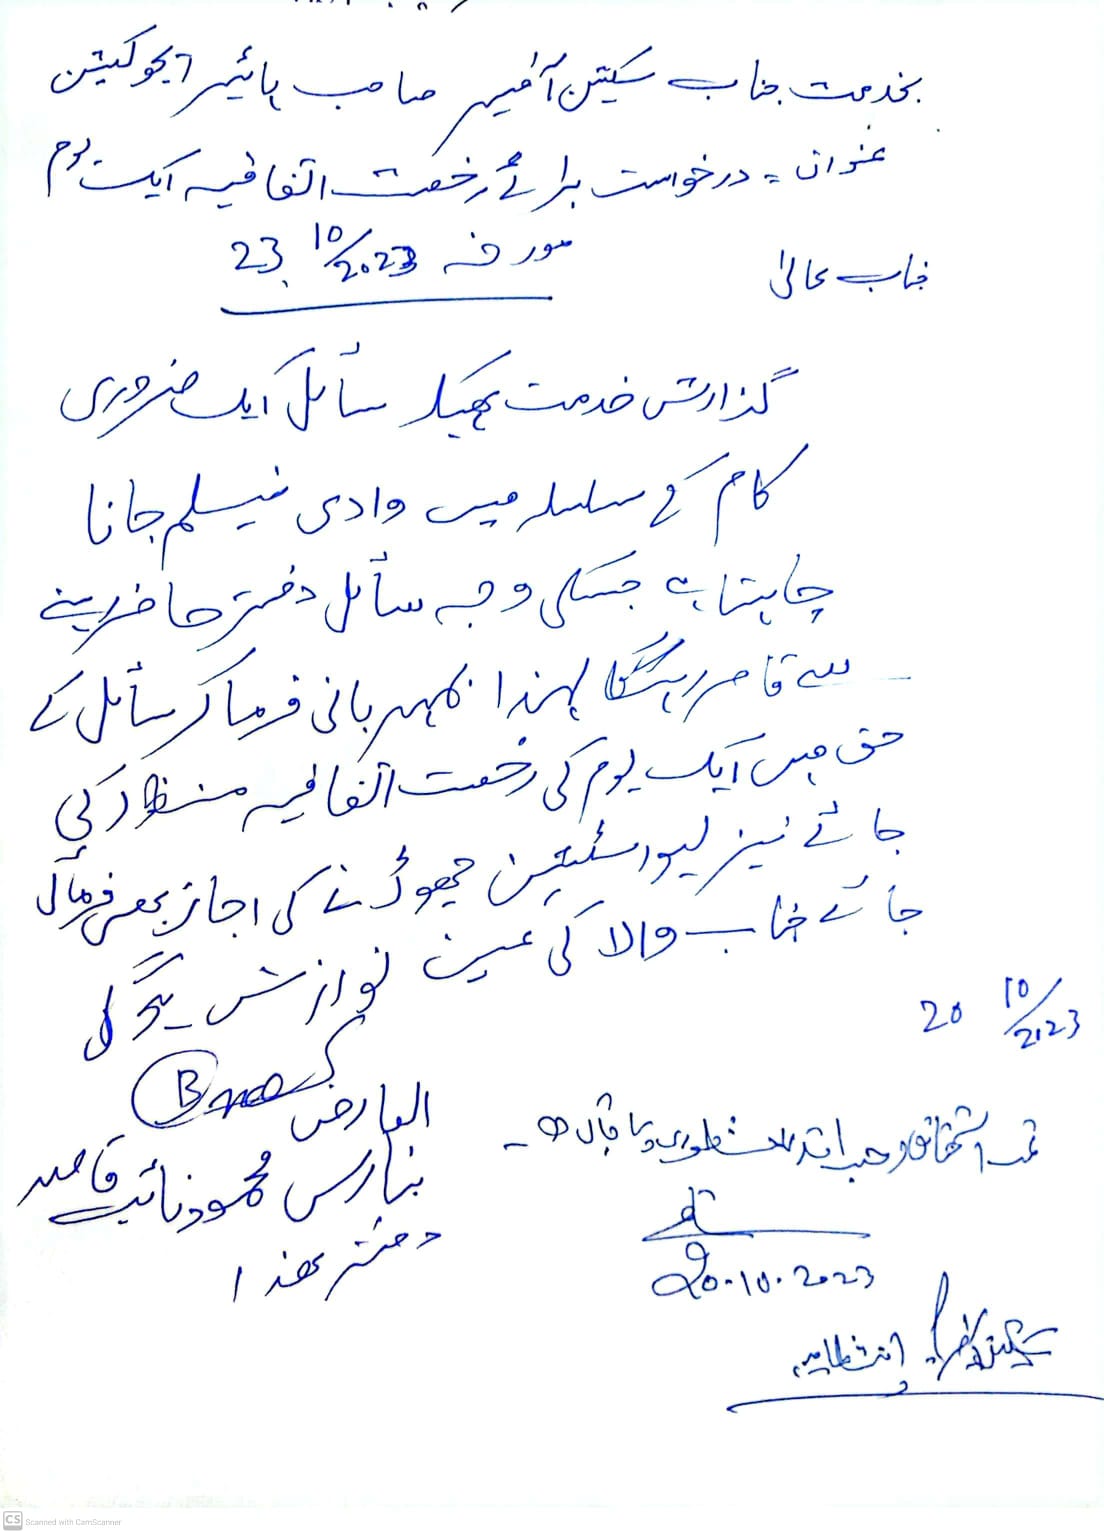 بخدمت جناب سیکشن آفیسر صاحب ہائیر ایجوکیشن
عنوان = درخواست برائے رخصت اتفاقیہ ایک یوم
مورخہ 23 10/2023
جناب عالی
گذارش خدمت ہیکہ سائل ایک ضروری
کام کے سلسلہ میں وادی نیلم جانا
چاہتا ہے جسکی وجہ سائل دفتر حاضر رہنے
سے قاصر رہیگا لہذا مہربانی فرما کر سائل کے
حق میں ایک یوم کی رخصت اتفاقیہ منظور کی
جائے نیز لیو اسٹیشن چھوڑنے کی اجازت بھی فرمائی
جائے جناب والا کی عین نوازش ہوگی
20 10/2023
العارض
بنارس محمود نائب قاصد
دفتر ھذا
20.10.2023
سیکشن آفیسر انتظامیہ
Scanned with CamScanner